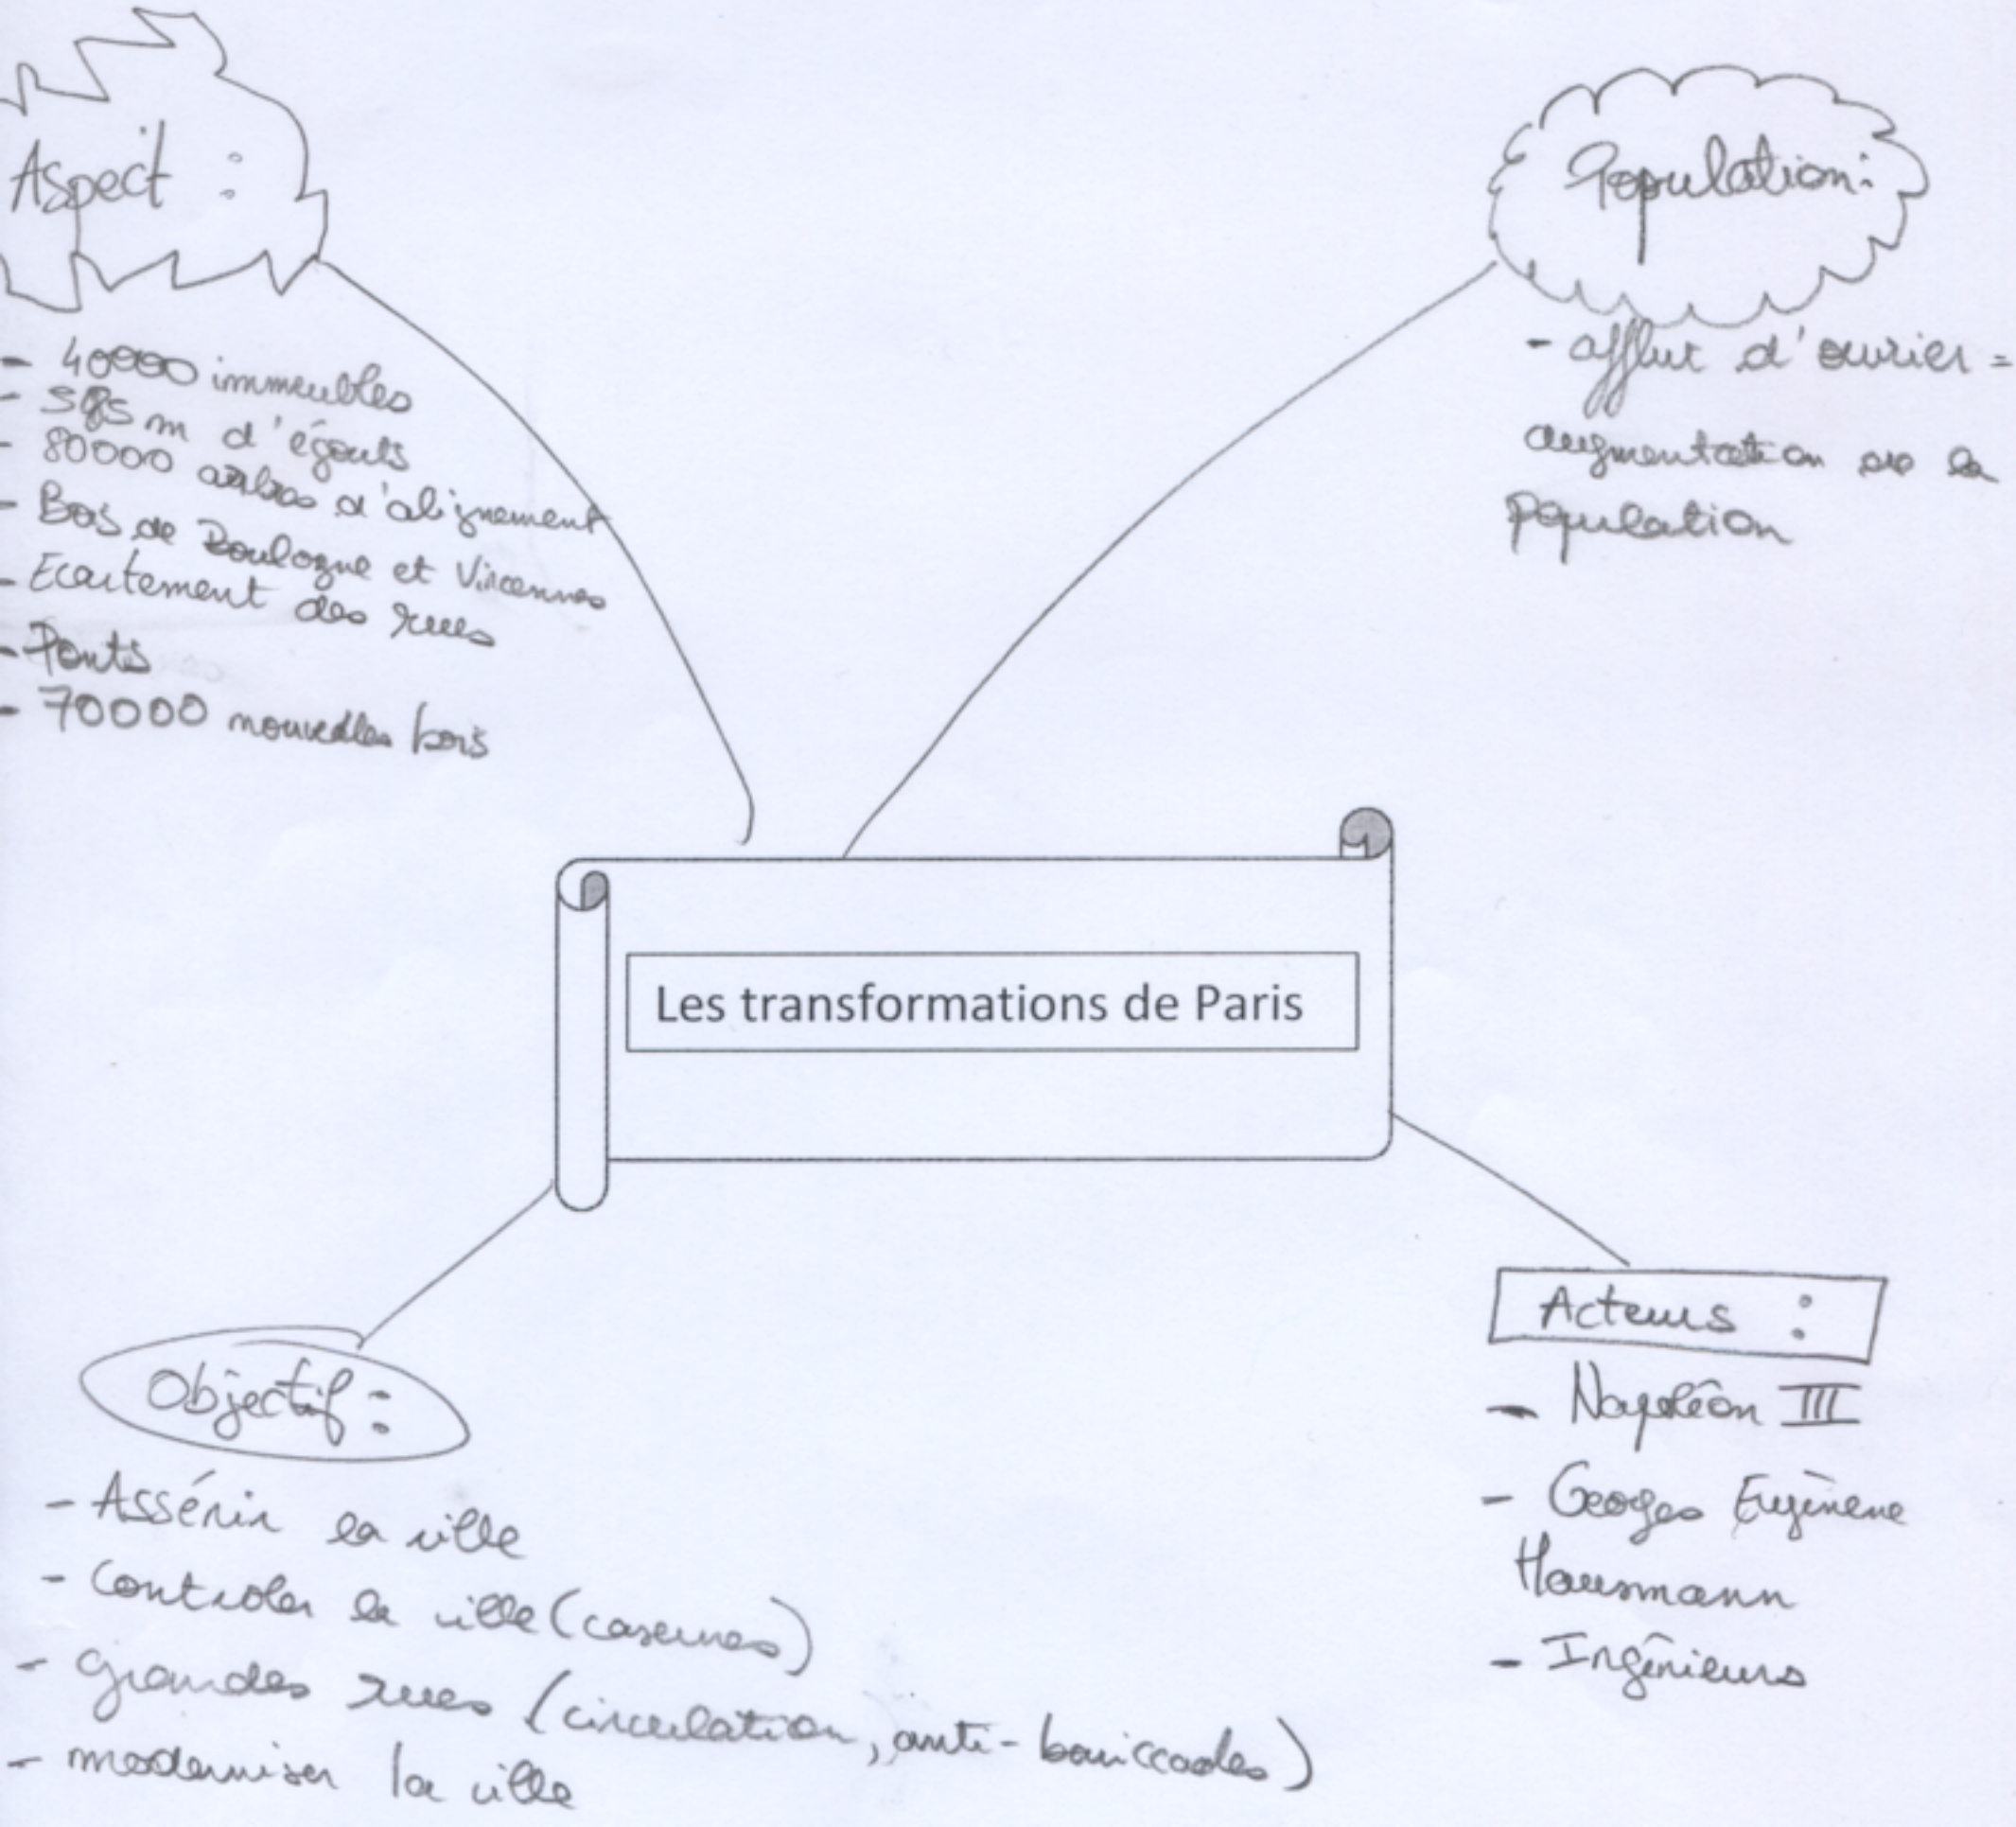 Aspect :
- 40000 immeubles
- 585 m d'égouts
- 80000 arbres d'alignement
- Bois de Boulogne et Vincennes
- Ecartement des rues
- Ponts
- 70000 nouvelles bois
Population :
- afflut d'ouvrier =
augmentation de la
population
Les transformations de Paris
Objectif :
- Assénir la ville
- controler la ville (casernes)
- grandes rues (circulation, anti-bariccades)
- moderniser la ville
Acteurs :
- Napoléon III
- Georges Eugènene
Hausmann
- Ingénieurs